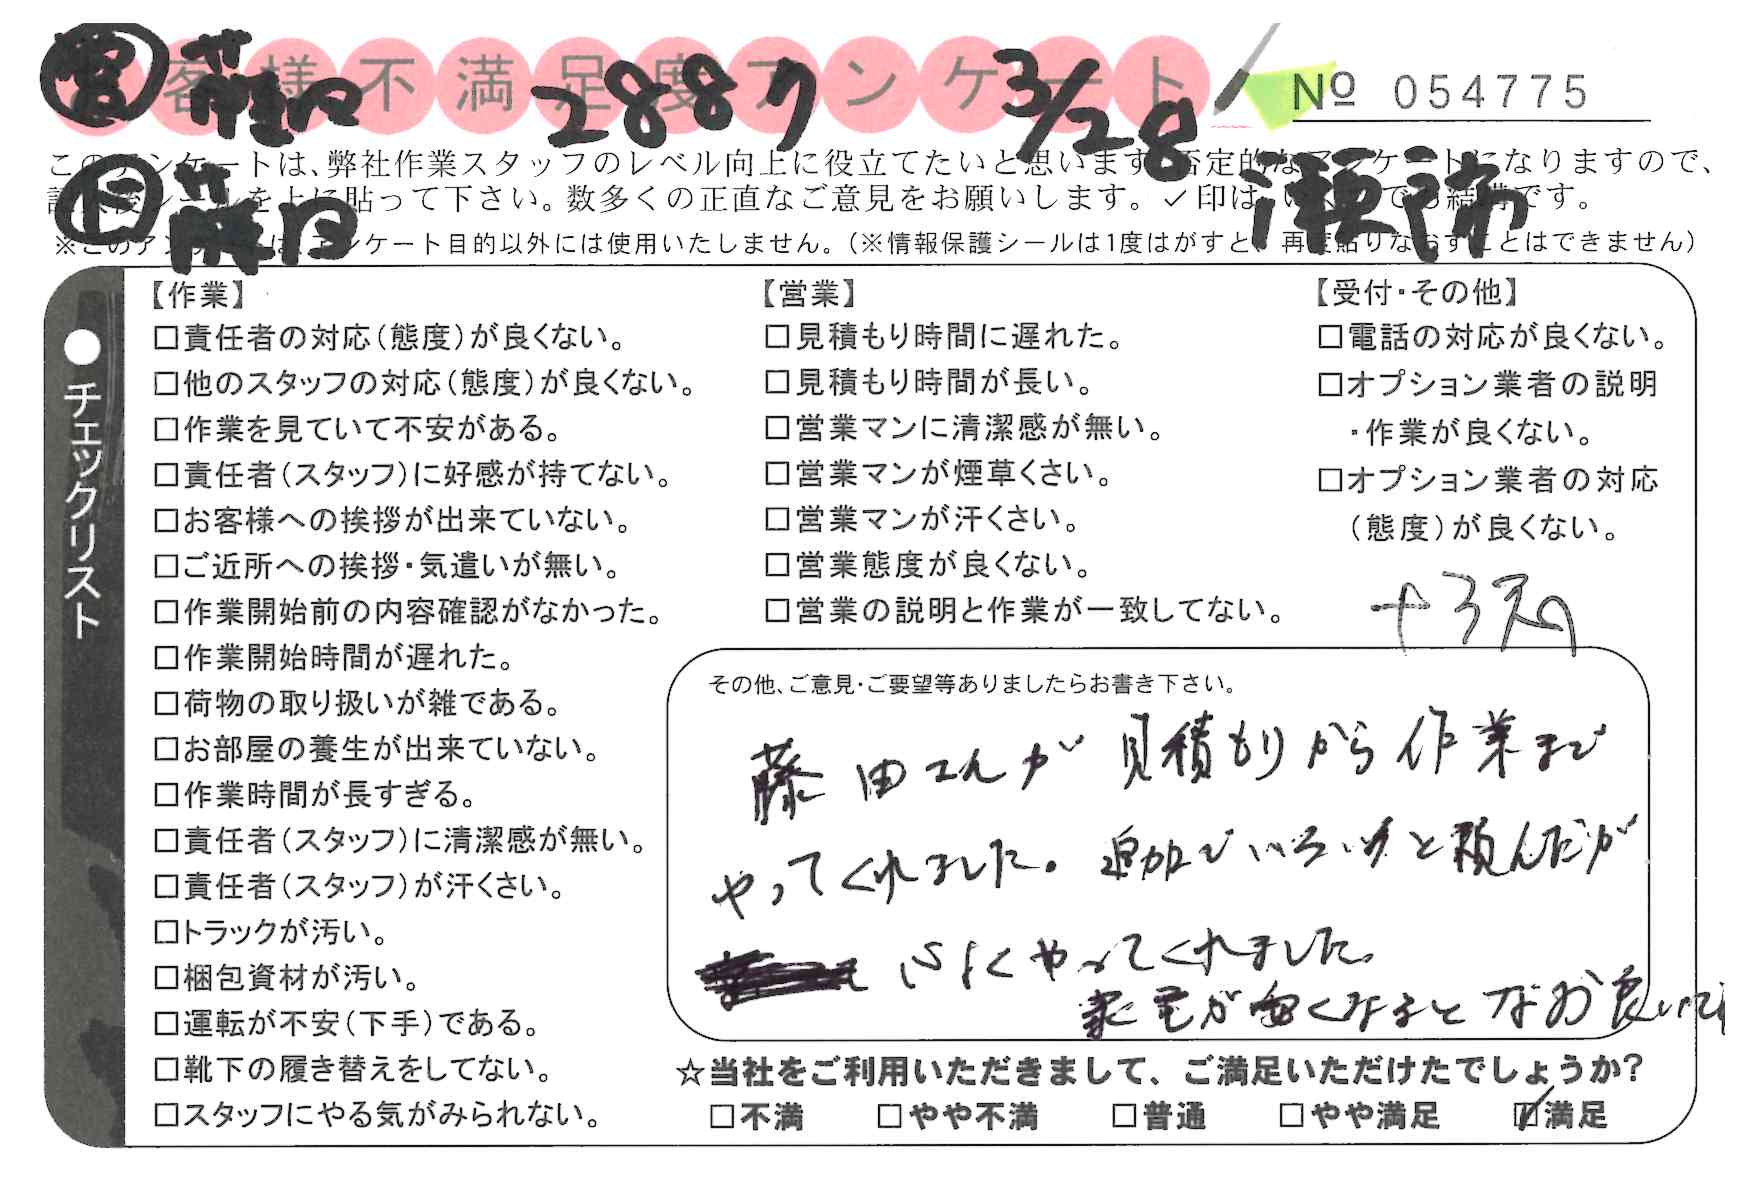 営 藤田 2887 3/28
お客様不満足度アンケート
№ 054775
このアンケートは、弊社作業スタッフのレベル向上に役立てたいと思います。否定的なアンケートになりますので、
を上に貼って下さい。数多くの正直なご意見をお願いします。✓印は でも結構です。
藤田
※このアンケートは、アンケート目的以外には使用いたしません。(※情報保護シールは1度はがすと、再度貼りなおすことはできません)
●チェックリスト
【作業】
□責任者の対応(態度)が良くない。
□他のスタッフの対応(態度)が良くない。
□作業を見ていて不安がある。
□責任者(スタッフ)に好感が持てない。
□お客様への挨拶が出来ていない。
□ご近所への挨拶・気遣いが無い。
□作業開始前の内容確認がなかった。
□作業開始時間が遅れた。
□荷物の取り扱いが雑である。
□お部屋の養生が出来ていない。
□作業時間が長すぎる。
□責任者(スタッフ)に清潔感が無い。
□責任者(スタッフ)が汗くさい。
□トラックが汚い。
□梱包資材が汚い。
□運転が不安(下手)である。
□靴下の履き替えをしてない。
□スタッフにやる気がみられない。
【営業】
□見積もり時間に遅れた。
□見積もり時間が長い。
□営業マンに清潔感が無い。
□営業マンが煙草くさい。
□営業マンが汗くさい。
□営業態度が良くない。
□営業の説明と作業が一致してない。
【受付・その他】
□電話の対応が良くない。
□オプション業者の説明
・作業が良くない。
□オプション業者の対応
(態度)が良くない。
その他、ご意見・ご要望等ありましたらお書き下さい。
藤田さんが 見積もりから作業まで
やってくれました。追加でいろいろと頼んだが
心よくやってくれました。
家電が安くなるとなお良い
☆当社をご利用いただきまして、ご満足いただけたでしょうか?
□不満 □やや不満 □普通 □やや満足 ☑満足